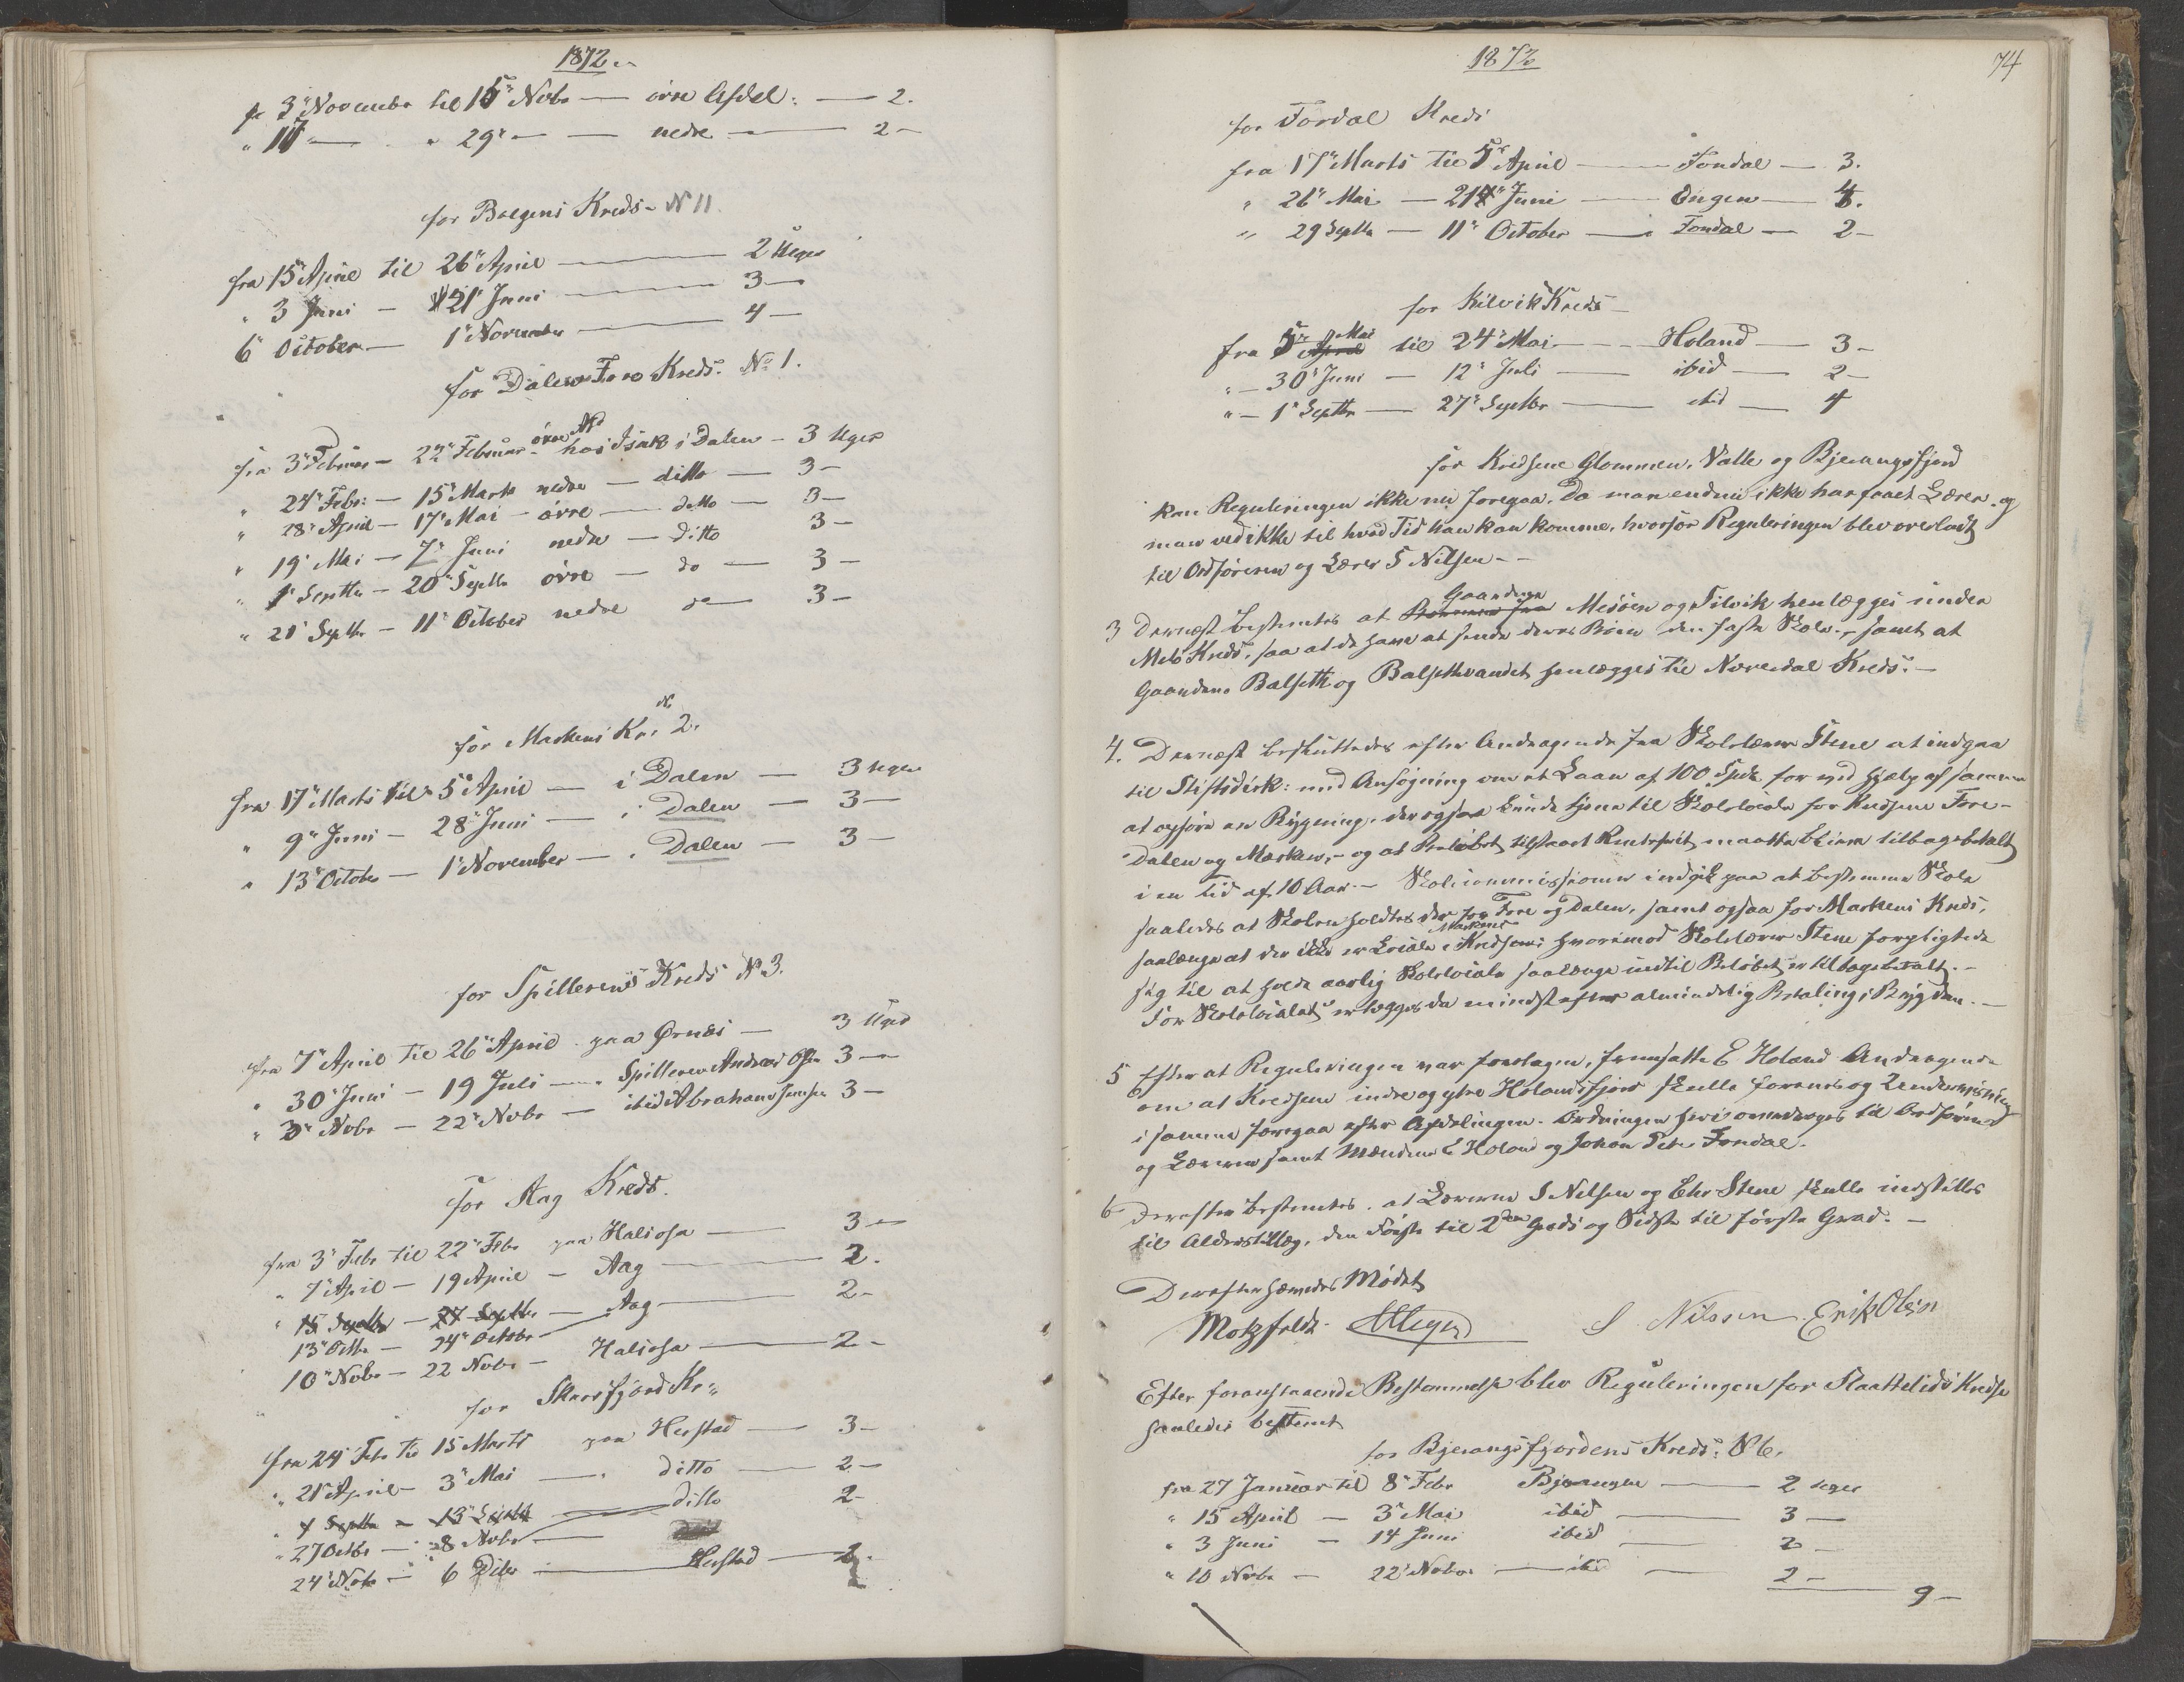 1872.
fr 3" November til 15" Nvbr — övre Afdel: — 2.
" 17 — " 29" — — nedre — 2 –
for Bolgens Kreds - N 11.
fra 15" April til 26" April — 2 Uger
" 3 Juni – 21" Juni — 3 —
6" October — 1" November — 4 –
for Dalen Fore Kreds. No 1.
fra 3" Februar – 22" Februar - övre Afd hos Isak i Dalen – 3 Uger
" 24" Febr: – 15" Marts nedre — ditto — 3 –
" 28" April – 17" Mai – övre — ditto — 3 –
" 19" Mai – 7" Juni nedre — ditto 3 –
" 1" Septbr – 20" Septbr övre — do — 3 –
" 21" Septbr – 11" October nedre do — 3 –
for Markens Kr. No 2.
fra 17" Marts til 5" April — i Dalen — 3 Uger
" 9" Juni – 28" Juni — i Dalen — 3 —
" 13" October – 1" November — i Dalen — 3 –
for Spillerens Kreds N 3.
fra 7" April til 26" April paa Ørnæs — 3 Uger
" 30" Juni – 19 Juli — " Spilleren Andreas Olsen 3 —
" 3" Nvbr – 22" Nvbr — ibid Abraham Jensen 3 –
for Aag Kreds.
fra 3" Febr til 22" Febr paa Haliosa — 3 –
" 7" April – 19 April – Aag — 2.
" 15 Septbr – 27 Septbr — Aag — 2 –
13" Octbr – 24" Octobr
10" Nvbr – 22 Nvbr – Haliosa — 2 –
for Skarsfjord Kr:
fra 24" Febr til 15 Marts paa Herstad — 3 –
" 21" April – 3" Mai — " ditto — 2 –
" 1 Septbr – 13" Septbr — ditto 2 –
" 27 Octbr — 8 Nvbr
24" Nvbr – 6 Dcbr — Herstad — 2.
1872
74
for Fordal Kreds
fra 17" Marts til 5" April — Fondal — 3.
" 26" Mai — 21" Juni — Engen — 4.
" 29 Septbr — 11" October — i Fondal — 2 –
for Kilvik Kreds –
fra 5" April Mai til 24" Mai — Holand — 3 –
" – 30" Juni — 12" Juli — ibid — 2 –
" – 1" Septbr — 27" Septbr — ibid — 4
for Kredsene Glommen, Valle og Bjerangsfjord
kan Reguleringen ikke nu foregaa, Da man endnu ikke har faaet Lærer, og
man ved ikke til hvad Tid han kan komme, hvorfor Reguleringen blev overladt
til Ordföreren og Lærer S Nilsen –
3 Dernæst bestemtes at Gaardene Mesöen og Tilvik henlægges under
Melö Kreds, saa at de have at sende deres Börn den faste Skole, – samt at
Gaardene Balseth og Balsethvandet henlægges til Neverdal Kreds. –
4. Dernæst besluttedes efter Andragende fra Skolelærer Stene at indgaa
til Stiftsdirk: med Ansögning om et Laan af 100 Spdr. for ved Hjælp af samme
at opföre en Bygning, der ogsaa kunde tjene til Skolelocale for Kredsene Fore-
Dalen og Marken, – og at Belöbet tilstaaet Rentefrit maatte blive tilbagebetalt
i en Tid af 10 Aar. – Skolecommissionen indgik paa at bestemme Skole
saaledes at Skolen holdtes der for Fore og Dalen, samt ogsaa for Markens Kreds,
saalænge at der ikke er Locale i Markens Kredsen; hvorimod Skolelærer Stene forpligtede
sig til at holde aarlig Skolelocale saalænge indtil Belöbet er tilbagebetalt. –
For Skolelocalet erlægges da mindst efter almindelig Betaling i Bygden. –
5 Efter at Reguleringen var foretagen, fremsatte E Holand Andragende
om at Kredsene indre og ytre Holandsfjord skulle forenes og Underviisning
i samme foregaa efter Afdelingen. Ordningen heri overdroges til Ordföreren
og Læreren samt Mændene E Holand og Johan Peter Fondal.
6 Derefter bestemtes, at Lærerne S Nilsen og Ehr Stene skulle indstilles
til Alderstillæg, den Förste til 2den Grads og Sidste til förste Grad. –
Derefter hævedes Mödet
Motzfeldt S Nilssen. Erik Olsen
Efter foranstaaende Bestemmelse blev Reguleringen for Staattelids Kredse
saaledes bestemt
for Bjerangsfjordens Kreds. N 6.
fra 27 Januar til 8" Febr Bjerangen — 2 Uger
" 15 April – 3" Mai ibid — 3 —
" 3 Juni – 14 Juni ibid — 2 –
" 10 Nvbr – 22" Nvbr — ibid — 2 –
9 –